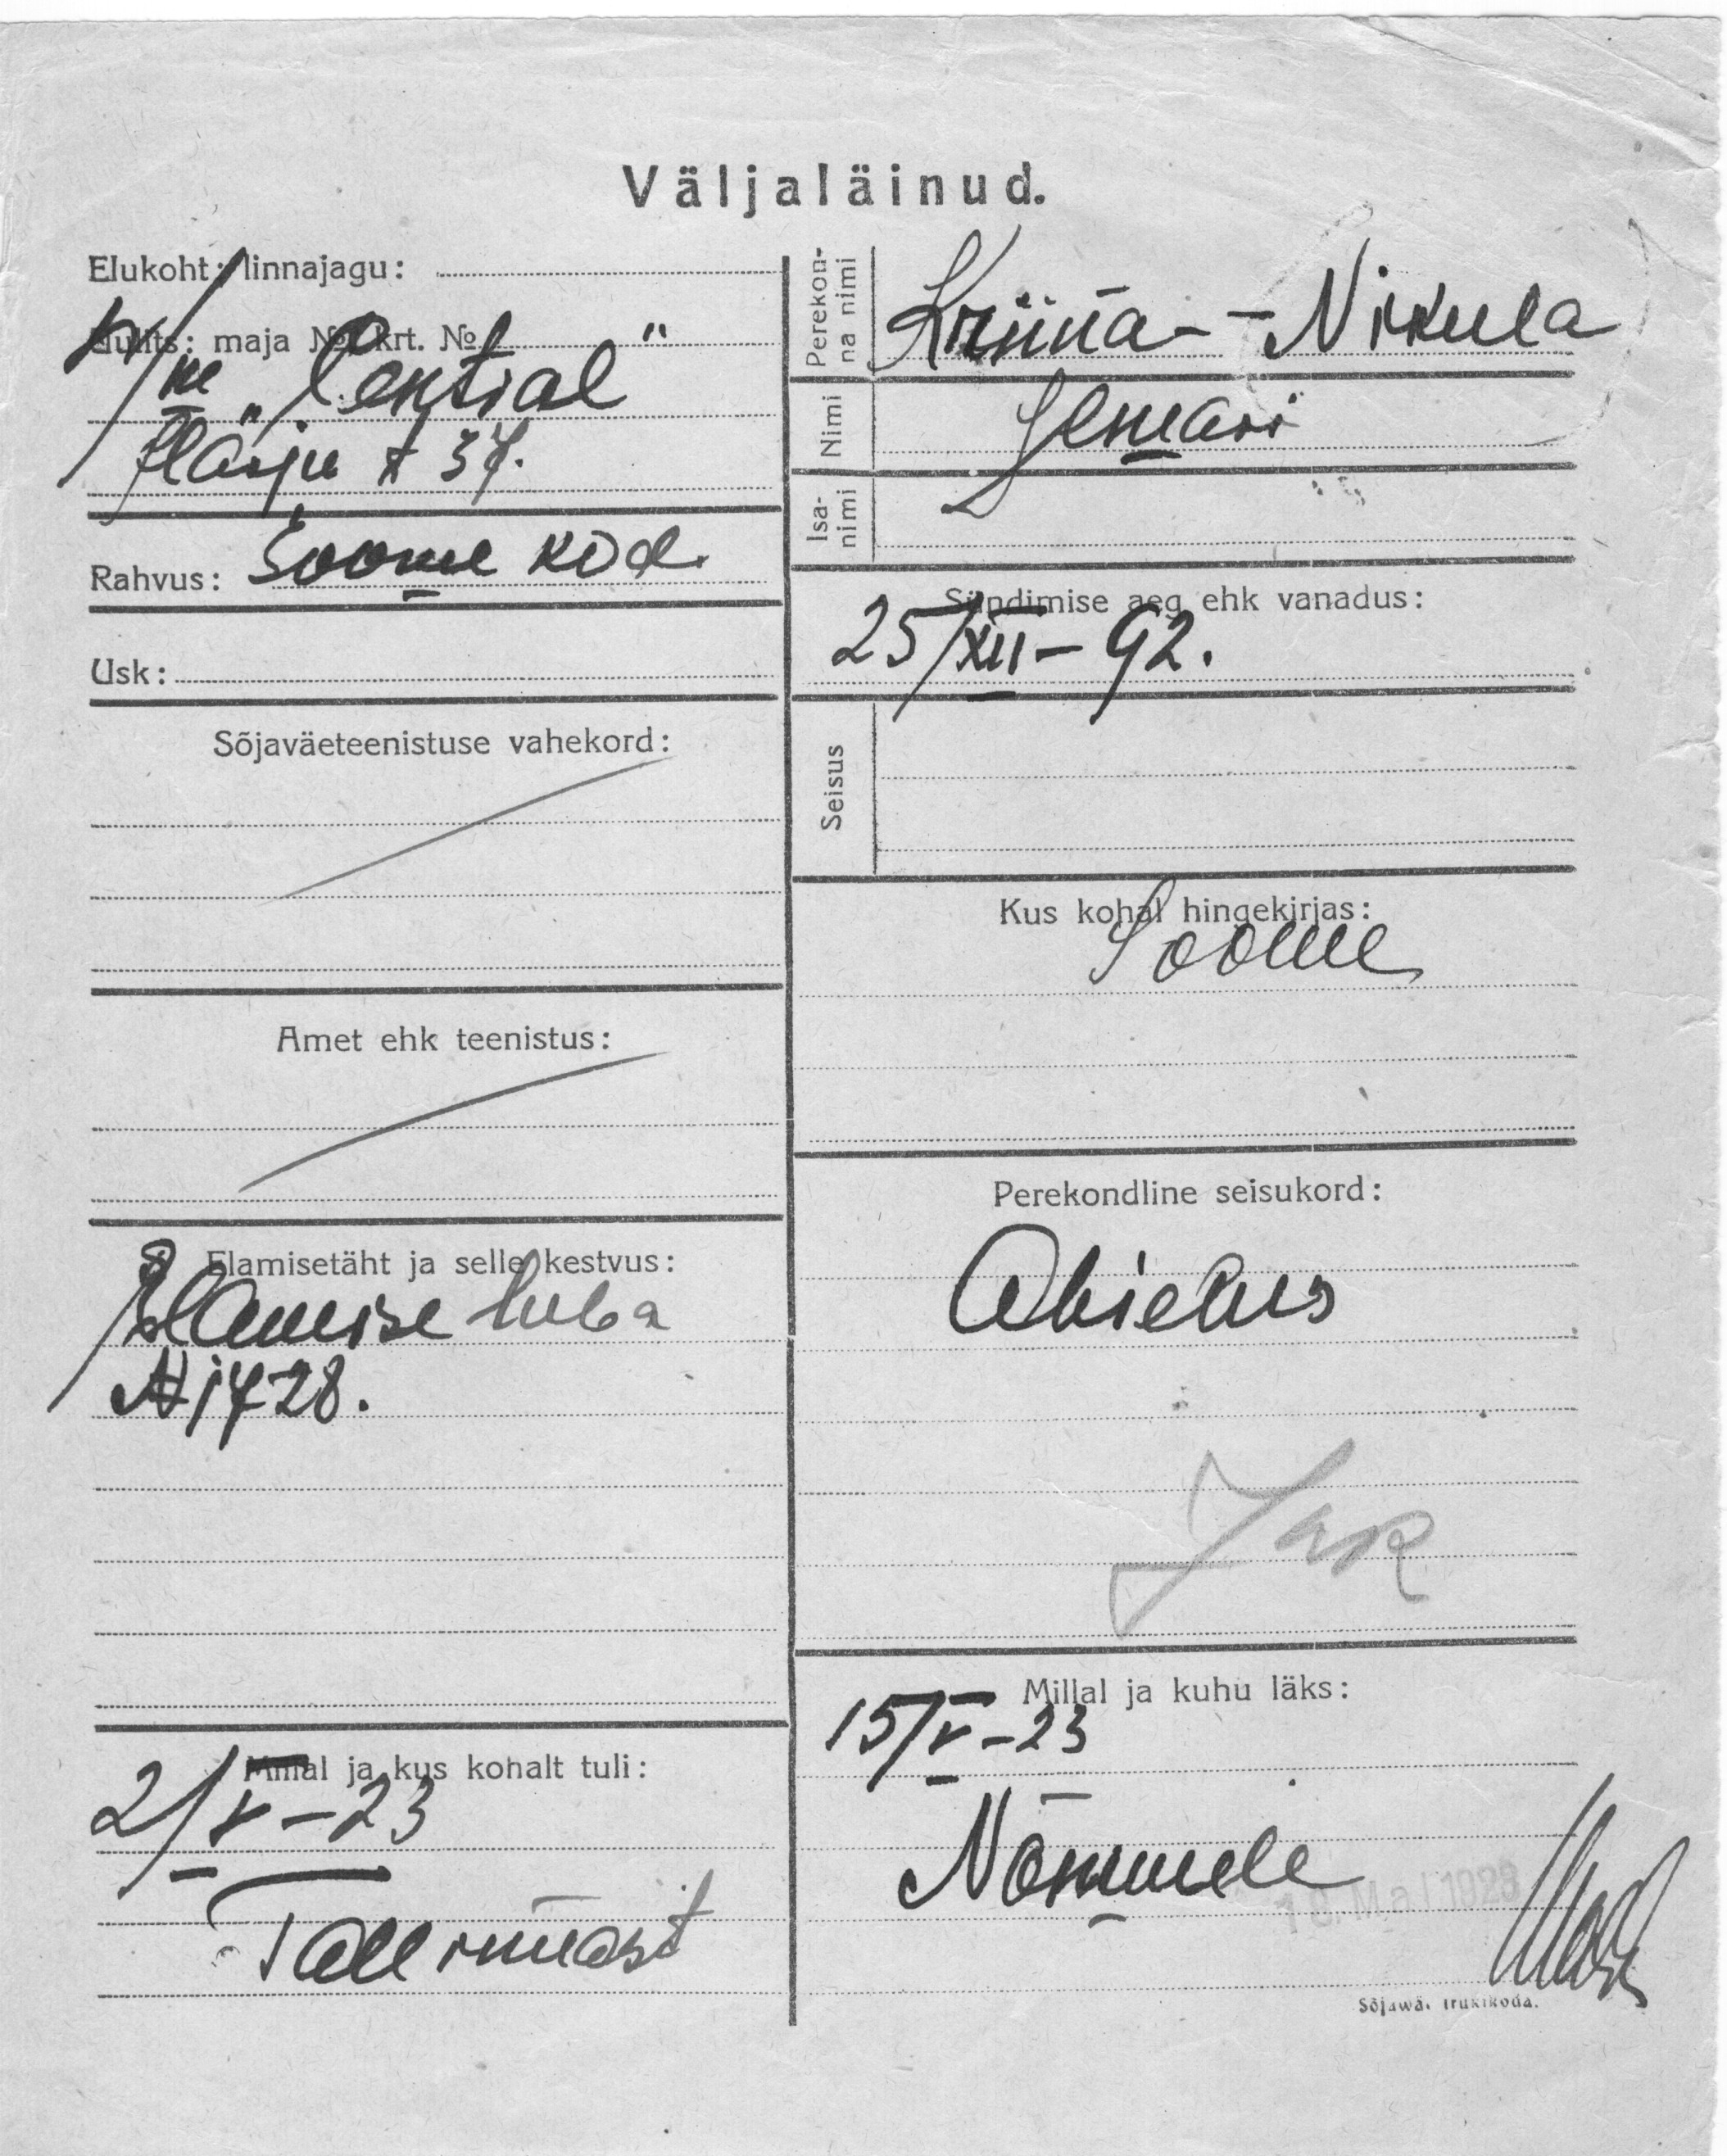 Väljaläinud.
Elukoht: linnajagu:
maja № krt. №
"Central"
Harju t 37.
Rahvus: Soome kod.
Usk:
Sõjaväeteenistuse vahekord:
Amet ehk teenistus:
Elamisetäht ja selle kestvus:
Elamise luba
N 1728.
Millal ja kus kohalt tuli:
2/V–23
Tallinnast
Perekonna nimi
Kriina-Nikula
Nimi
Ilmari
Isanimi
Sündimise aeg ehk vanadus:
25/XII–92.
Seisus
Kus kohal hingekirjas:
Soome
Perekondline seisukord:
Abielus
Millal ja kuhu läks:
15/V–23
Nõmmele
Mai 1923
Sõjawä. trükikoda.